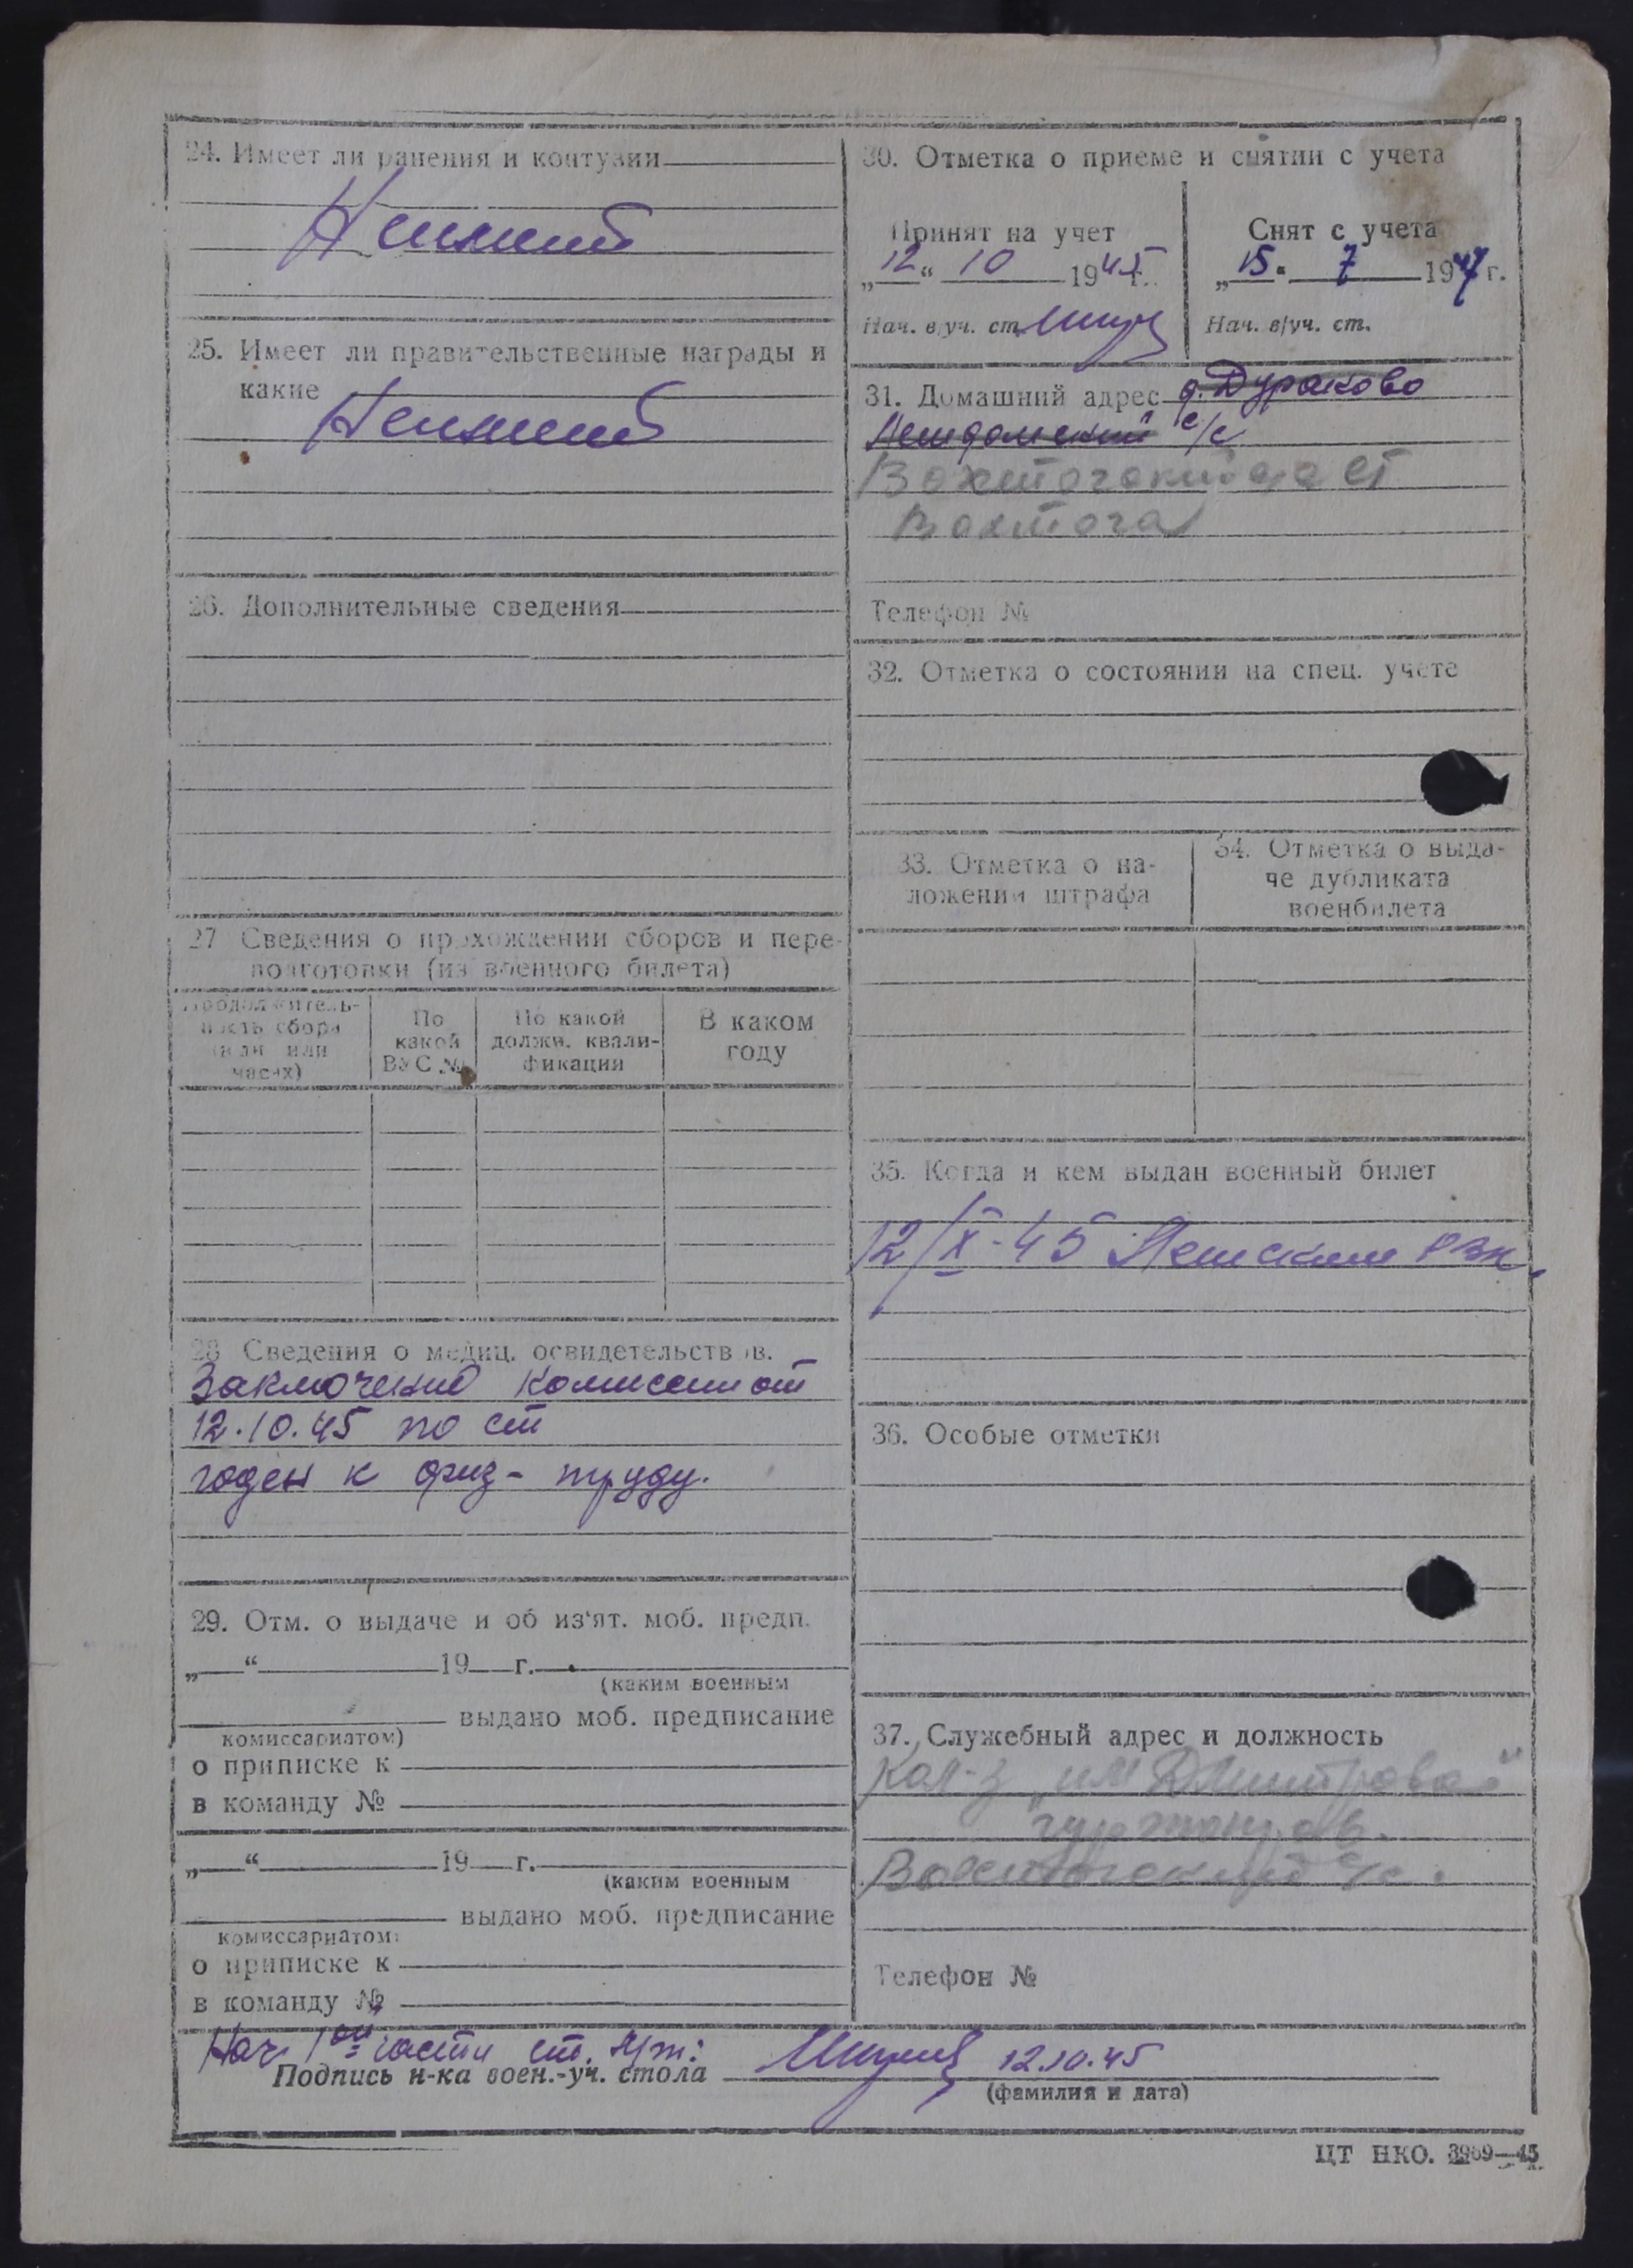 24. Имеет ли ранения и контузии
Не имеет
25. Имеет ли правительственные награды и
какие
Не имеет
26. Дополнительные сведения
27 Сведения о прохождении сборов и пере-
подготовки (из военного билета)
Продолжитель-
ность сбора
(в дн или
часах)
По
какой
ВУС №
По какой
должн. квали-
фикации
В каком
году
28 Сведения о медиц. освидетельств ов.
Заключение комиссии от
12.10.45 по ст
годен к физ- труду.
29. Отм. о выдаче и об из'ят. моб. предп.
„ “ 19 г.
(каким военным
выдано моб. предписание
комиссариатом)
о приписке к
в команду №
„ “ 19 г.
(каким военным
выдано моб. предписание
комиссариатом)
о приписке к
в команду №
30. Отметка о приеме и снятии с учета
Принят на учет
„12“ 10 1945г.
Нач. в/уч. ст.
Снят с учета
„15“ 7 1947г.
Нач. в/уч. ст.
31. Домашний адрес д. Дураково
с/с
Вохтога
Телефон №
32. Отметка о состоянии на спец. учете
33. Отметка о на-
ложении штрафа
34. Отметка о выда-
че дубликата
военбилета
35. Когда и кем выдан военный билет
12/X-45 РВК
36. Особые отметки
37. Служебный адрес и должность
Кол-з „им Дмитрова“
с/с.
Телефон №
Нач 1ой части ст. л/т:
Подпись н-ка воен.-уч. стола 12.10.45
(фамилия и дата)
ЦТ НКО. 3969—45